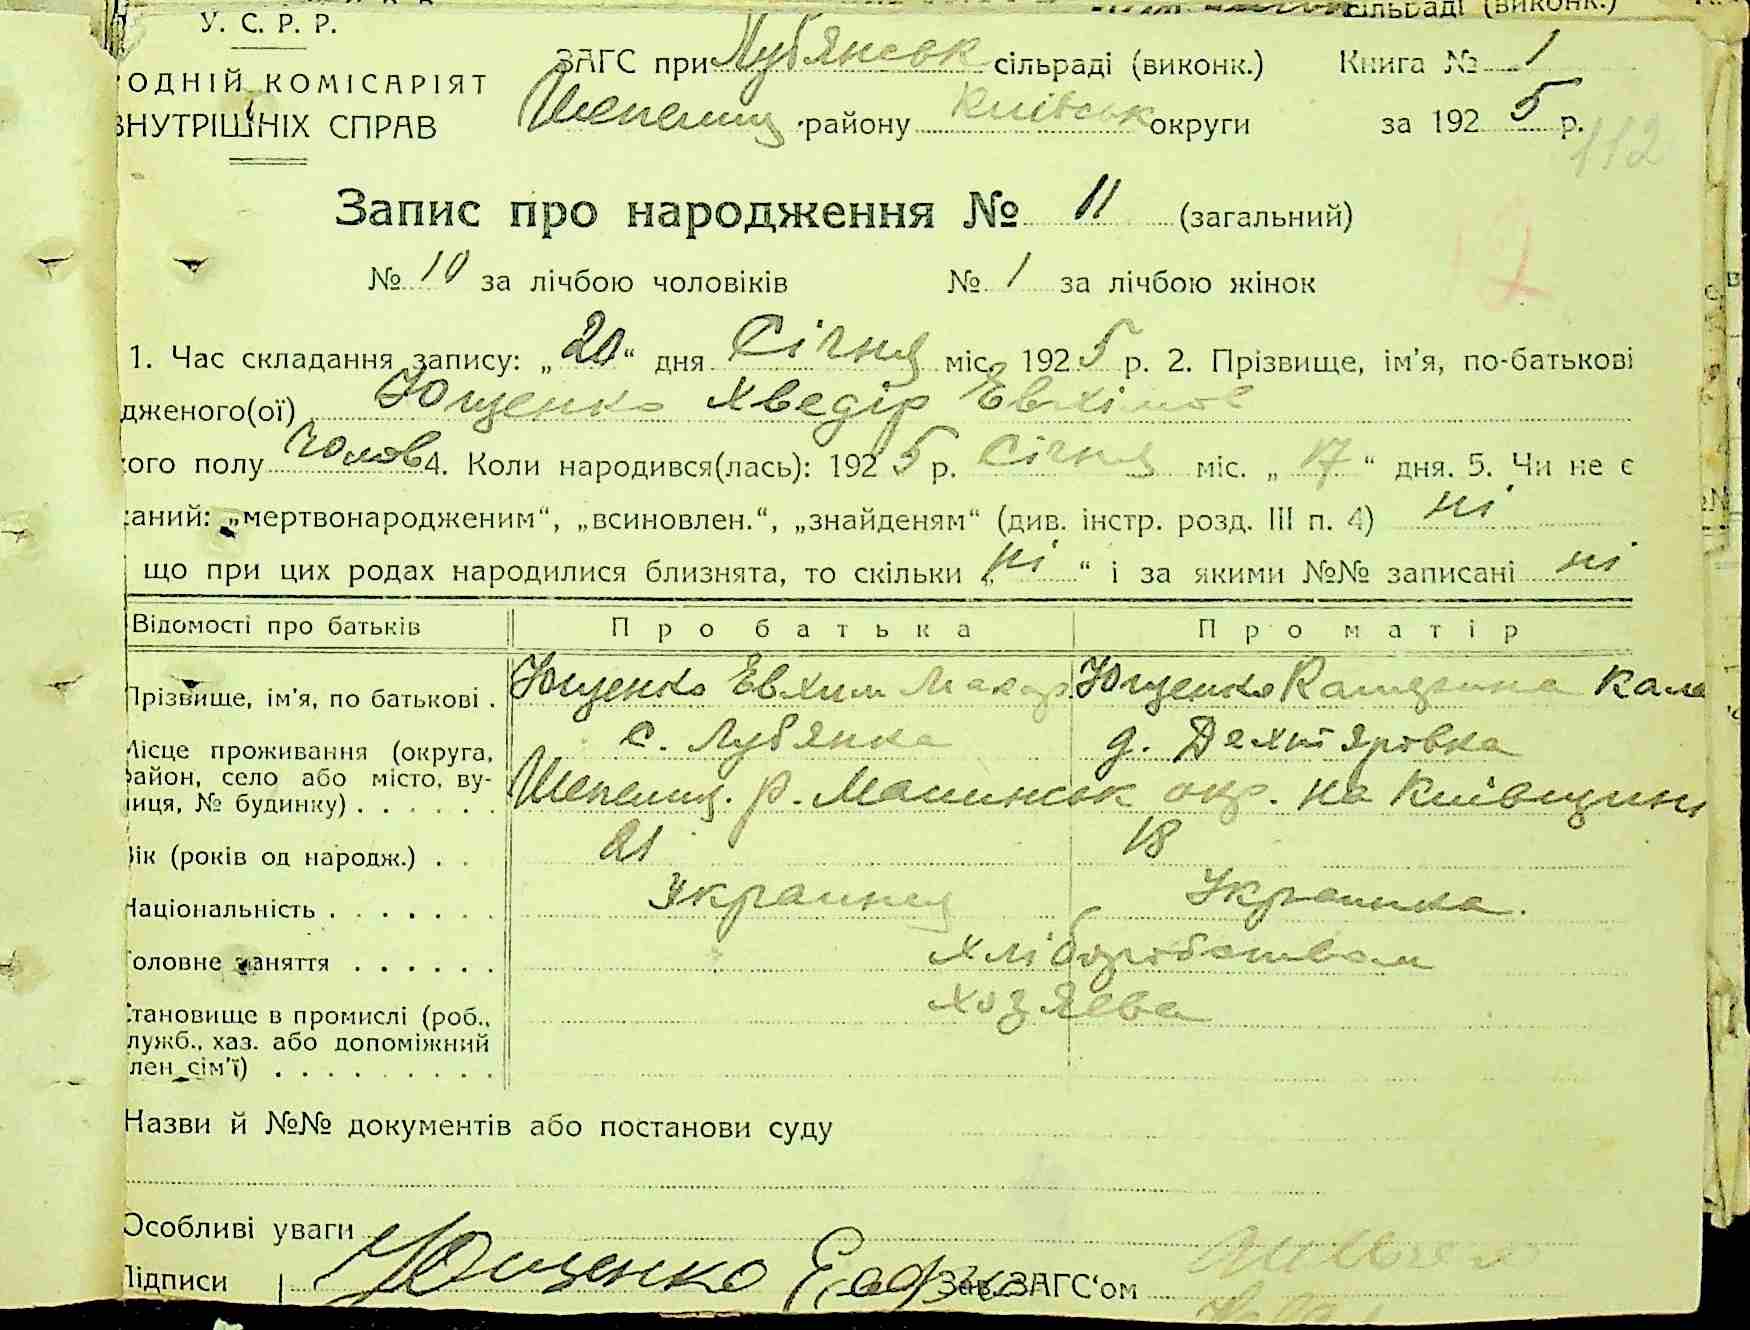 сільраді (виконк.)
У. С. Р. Р.
ЗАГС при Лубянськ сільраді (виконк.) Книга № 1
ОДНІЙ КОМІСАРІЯТ
Шепелиц району Київськ округи за 1925 р.
ВНУТРІШНІХ СПРАВ
112
Запис про народження № 11 (загальний)
№ 10 за лічбою чоловіків № 1 за лічбою жінок
1. Час складання запису: „20“ дня Січня міс. 1925 р. 2. Прізвище, ім'я, по-батькові
дженого(ої) Ющенко Хведір Евхімов
ого полу Чолов 4. Коли народився(лась): 1925 р. Січня міс. „17“ дня. 5. Чи не є
аний: „мертвонародженим“, „всиновлен.“, „знайденям“ (див. інстр. розд. III п. 4) ні
що при цих родах народилися близнята, то скільки „ні“ і за якими №№ записані ні
Відомості про батьків Про батька Про матір
Прізвище, ім'я, по батькові . Ющенко Евхим Макар. Ющенко Катерина Кале
с. Лубянка д. Дехтяровка
Місце проживання (округа,
район, село або місто, ву-
лиця, № будинку) . . . . . . Шепелиц. р. Малинськ окр. на Київщині
Вік (років од народж.) . . 21 18
Національність . . . . . . . Украинец Украинка.
Головне заняття . . . . . . Хліборобством
Становище в промислі (роб., Хозяева
служб., хаз. або допоміжний
член сім'ї) . . . . . . . . .
Назви й №№ документів або постанови суду
Особливі уваги
Підписи Ющенко Зав. ЗАГС'ом